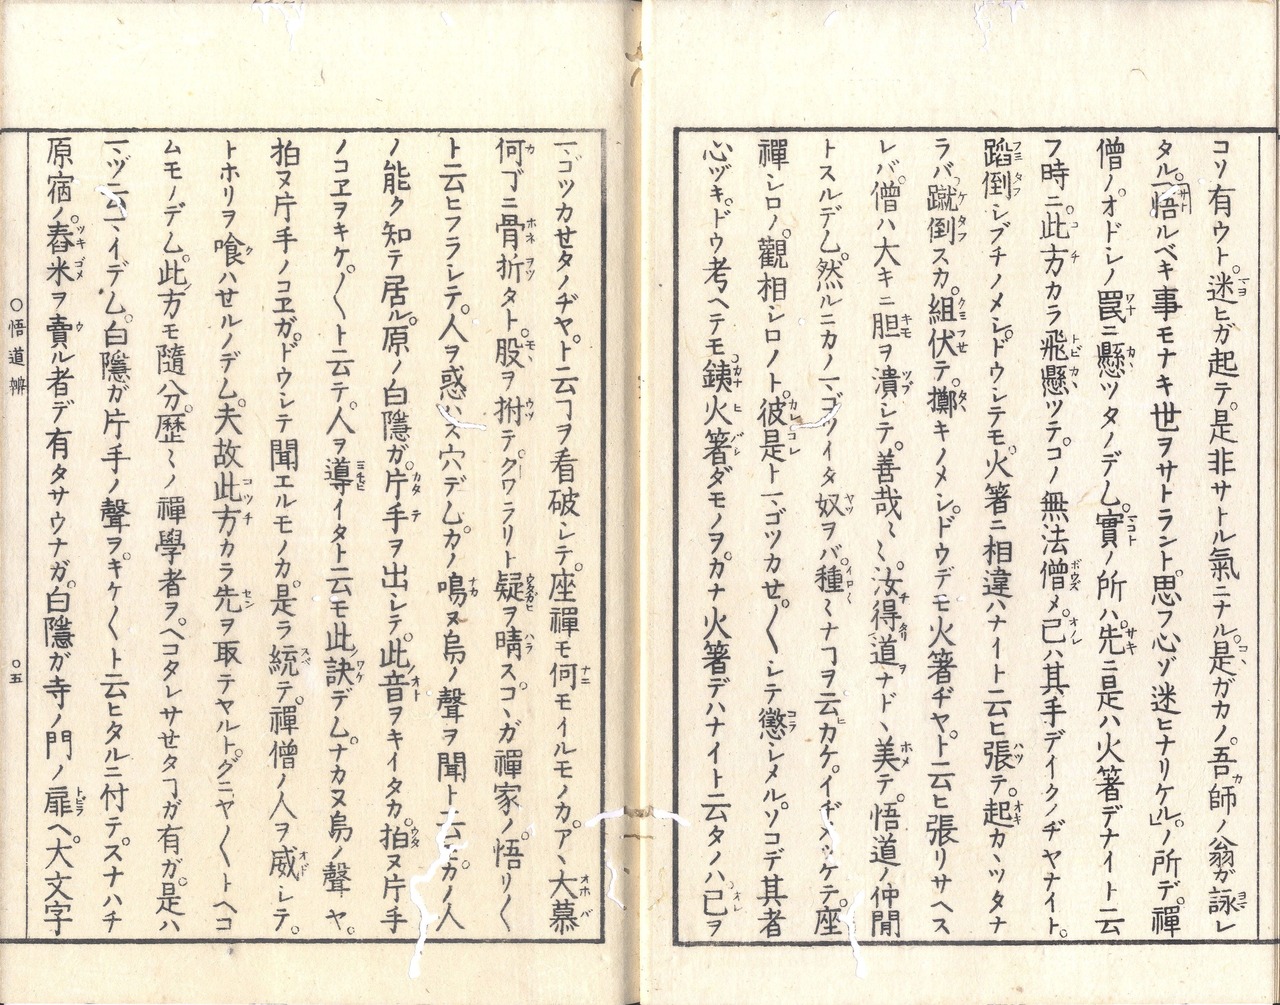 コソ有ウト。迷ヒガ起テ。是非サトル氣ニナル。是ガカノ。吾師ノ翁ガ詠レ
タル。「悟ルベキ事モナキ世ヲサトラント。思フ心ゾ迷ヒナリケル」。ノ所デ。禪
僧ノオドシノ罠ニ懸ツタノデ厶。實ノ所ハ。先ニ是ハ火箸デナイト云
フ時ニ。此方カラ飛懸ツテ。コノ無法僧メ。己ハ其手デイクノヂヤナイト。
蹈倒シブチノメシ。ドウシテモ。火箸ニ相違ハナイト云ヒ張テ。起カヽツタナ
ラバ。蹴倒スカ。組伏テ。擲キノメシ。ドウデモ火箸ヂヤト云ヒ張リサヘス
レバ。僧ハ大キニ胆ヲ潰シテ。善哉〻〻。汝得道ヲナドヽ美テ。悟道ノ仲間
トスルデ厶。然ルニカノマゴツイタ奴ヲバ。種〻ナヿヲ云カケ。イヂメツケテ。座
禪シロノ。觀相シロノト。彼是トマゴツカせ。〳〵シテ懲シメル。ソコデ其者
心ヅキ。ドウ考ヘテモ。銕火箸ダモノヲ。カナ火箸デハナイト云タノハ。己ヲ
マゴツカせタノヂヤ。ト云ヿヲ看破シテ。座禪モ何モイルモノカ。アヽ大慕
何ゴニ骨折タト。股ヲ拊テ。クワラリト疑ヲ晴ス。コヽガ禪家ノ。悟リ〳〵
ト云ヒフラシテ。人ヲ惑ハス穴デ厶。カノ鳴ヌ烏ノ聲ヲ聞ト云モ。カノ人
ノ能ク知テ居ル。原ノ白隱ガ。片手ヲ出シテ。此音ヲキイタカ。拍ヌ片手
ノコヱヲキケ〳〵ト云テ。人ヲ導イタト云モ此訣デ厶。ナカヌ烏ノ聲ヤ。
拍ヌ片手ノコヱガ。ドウシテ聞エルモノカ。是ラ統テ。禪僧ノ人ヲ威シテ。
トホリヲ喰ハせルノデ厶。夫故此方カラ先ヲ取テヤルト。グニヤ〳〵トヘコ
ムモノデ厶。此方モ隨分。歷〻ノ禪學者ヲ。ヘコタレサせタヿガ有ガ。是ハ
マヅ云マイデ厶。白隱ガ片手ノ聲ヲ。キケ〳〵ト云ヒタルニ付テ。スナハチ
原宿ノ。舂米ヲ賣ル者デ有タサウナガ。白隱ガ寺ノ門ノ扉ヘ。大文字
○悟道辨
○五